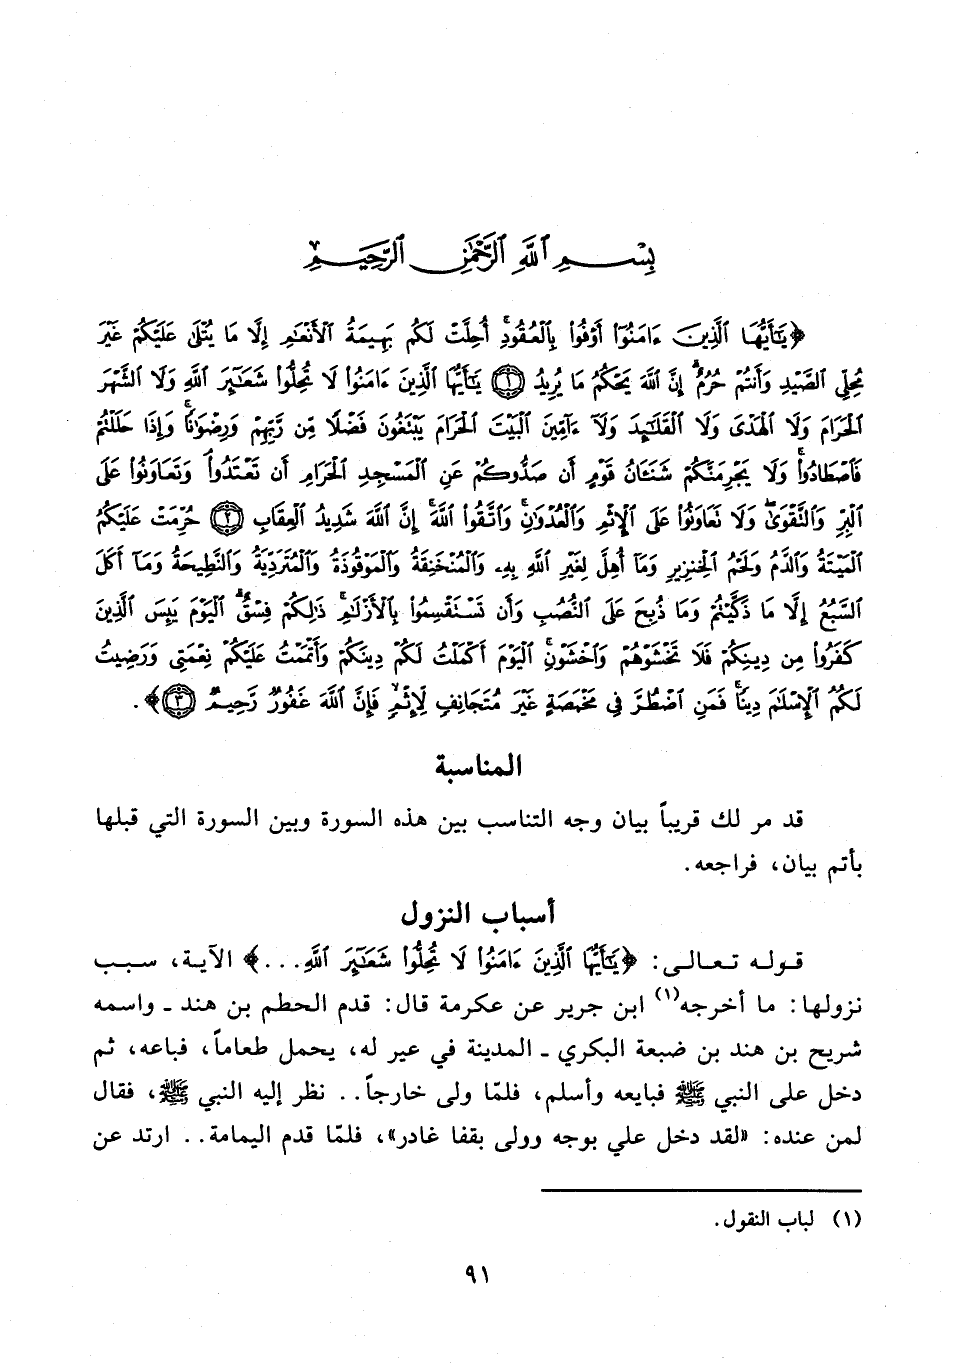 بِسْمِ ٱللَّهِ ٱلرَّحْمَٰنِ ٱلرَّحِيمِ
﴿يَٰٓأَيُّهَا ٱلَّذِينَ ءَامَنُوٓا۟ أَوْفُوا۟ بِٱلْعُقُودِ ۚ أُحِلَّتْ لَكُم بَهِيمَةُ ٱلْأَنْعَٰمِ إِلَّا مَا يُتْلَىٰ عَلَيْكُمْ غَيْرَ
مُحِلِّى ٱلصَّيْدِ وَأَنتُمْ حُرُمٌ ۗ إِنَّ ٱللَّهَ يَحْكُمُ مَا يُرِيدُ ۝١ يَٰٓأَيُّهَا ٱلَّذِينَ ءَامَنُوا۟ لَا تُحِلُّوا۟ شَعَٰٓئِرَ ٱللَّهِ وَلَا ٱلشَّهْرَ
ٱلْحَرَامَ وَلَا ٱلْهَدْىَ وَلَا ٱلْقَلَٰٓئِدَ وَلَآ ءَآمِّينَ ٱلْبَيْتَ ٱلْحَرَامَ يَبْتَغُونَ فَضْلًا مِّن رَّبِّهِمْ وَرِضْوَٰنًا ۚ وَإِذَا حَلَلْتُمْ
فَٱصْطَادُوا۟ ۚ وَلَا يَجْرِمَنَّكُمْ شَنَـَٔانُ قَوْمٍ أَن صَدُّوكُمْ عَنِ ٱلْمَسْجِدِ ٱلْحَرَامِ أَن تَعْتَدُوا۟ ۘ وَتَعَاوَنُوا۟ عَلَى
ٱلْبِرِّ وَٱلتَّقْوَىٰ ۖ وَلَا تَعَاوَنُوا۟ عَلَى ٱلْإِثْمِ وَٱلْعُدْوَٰنِ ۚ وَٱتَّقُوا۟ ٱللَّهَ ۖ إِنَّ ٱللَّهَ شَدِيدُ ٱلْعِقَابِ ۝٢ حُرِّمَتْ عَلَيْكُمُ
ٱلْمَيْتَةُ وَٱلدَّمُ وَلَحْمُ ٱلْخِنزِيرِ وَمَآ أُهِلَّ لِغَيْرِ ٱللَّهِ بِهِۦ وَٱلْمُنْخَنِقَةُ وَٱلْمَوْقُوذَةُ وَٱلْمُتَرَدِّيَةُ وَٱلنَّطِيحَةُ وَمَآ أَكَلَ
ٱلسَّبُعُ إِلَّا مَا ذَكَّيْتُمْ وَمَا ذُبِحَ عَلَى ٱلنُّصُبِ وَأَن تَسْتَقْسِمُوا۟ بِٱلْأَزْلَٰمِ ۚ ذَٰلِكُمْ فِسْقٌ ۗ ٱلْيَوْمَ يَئِسَ ٱلَّذِينَ
كَفَرُوا۟ مِن دِينِكُمْ فَلَا تَخْشَوْهُمْ وَٱخْشَوْنِ ۚ ٱلْيَوْمَ أَكْمَلْتُ لَكُمْ دِينَكُمْ وَأَتْمَمْتُ عَلَيْكُمْ نِعْمَتِى وَرَضِيتُ
لَكُمُ ٱلْإِسْلَٰمَ دِينًا ۚ فَمَنِ ٱضْطُرَّ فِى مَخْمَصَةٍ غَيْرَ مُتَجَانِفٍ لِّإِثْمٍ ۙ فَإِنَّ ٱللَّهَ غَفُورٌ رَّحِيمٌ ۝٣﴾.
المناسبة
قد مر لك قريباً بيان وجه التناسب بين هذه السورة وبين السورة التي قبلها
بأتم بيان، فراجعه.
أسباب النزول
قوله تعالى: ﴿يَٰٓأَيُّهَا ٱلَّذِينَ ءَامَنُوا۟ لَا تُحِلُّوا۟ شَعَٰٓئِرَ ٱللَّهِ...﴾ الآية، سبب
نزولها: ما أخرجه(١) ابن جرير عن عكرمة قال: قدم الحطم بن هند ـ واسمه
شريح بن هند بن ضبعة البكري ـ المدينة في عير له، يحمل طعاماً، فباعه، ثم
دخل على النبي ﷺ فبايعه وأسلم، فلمّا ولى خارجاً.. نظر إليه النبي ﷺ، فقال
لمن عنده: «لقد دخل علي بوجه وولى بقفا غادر»، فلمّا قدم اليمامة.. ارتد عن
(١) لباب النقول.
٩١